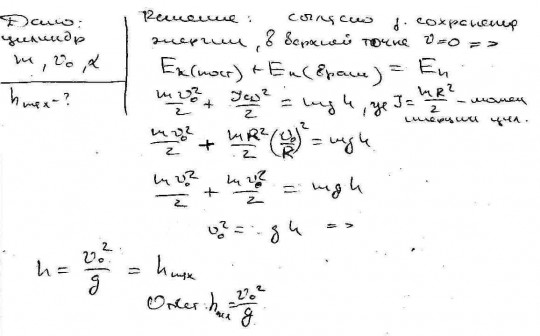 Дано:
цилиндр
m, v₀, α
hmax - ?
Решение: согласно з. сохранения
энергии, в верхней точке v=0 =>
Eк(пост) + Eк(вращ) = Eп
mv₀²/2 + Jω²/2 = mgh, где J = mR²/2 - момен
инерции цил.
mv₀²/2 + mR²/2 (v₀/R)² = mgh
mv₀²/2 + mv₀²/2 = mgh
v₀² = gh =>
h = v₀²/g = hmax
Ответ: hmax = v₀²/g